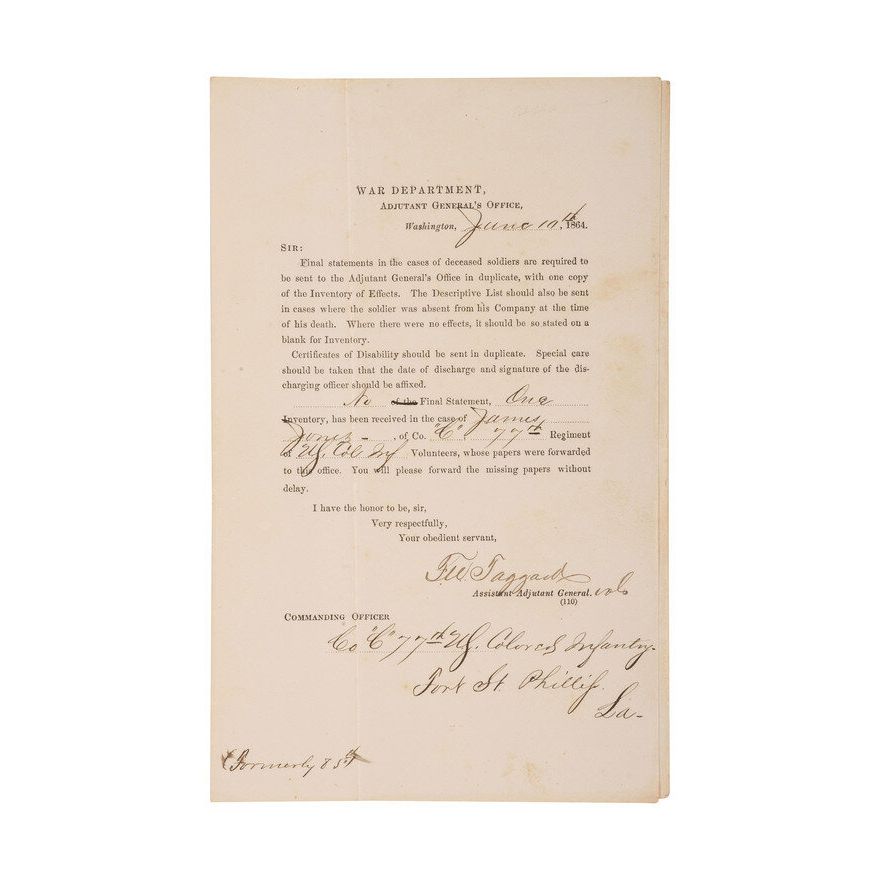 WAR DEPARTMENT,
ADJUTANT GENERAL'S OFFICE,
Washington, June 19th, 1864.
SIR:
Final statements in the cases of deceased soldiers are required to
be sent to the Adjutant General's Office in duplicate, with one copy
of the Inventory of Effects. The Descriptive List should also be sent
in cases where the soldier was absent from his Company at the time
of his death. Where there were no effects, it should be so stated on a
blank for Inventory.
Certificates of Disability should be sent in duplicate. Special care
should be taken that the date of discharge and signature of the dis-
charging officer should be affixed.
No of the Final Statement, One
Inventory, has been received in the case of James
Jones - , of Co. "C" 77th Regiment
of U.S. Col Inf Volunteers, whose papers were forwarded
to this office. You will please forward the missing papers without
delay.
I have the honor to be, sir,
Very respectfully,
Your obedient servant,
Taggard
Assistant Adjutant General. vols
(110)
COMMANDING OFFICER
Co "C" 77th U.S. Colored Infantry.
Fort St. Phillip.
La-
(Formerly 85th